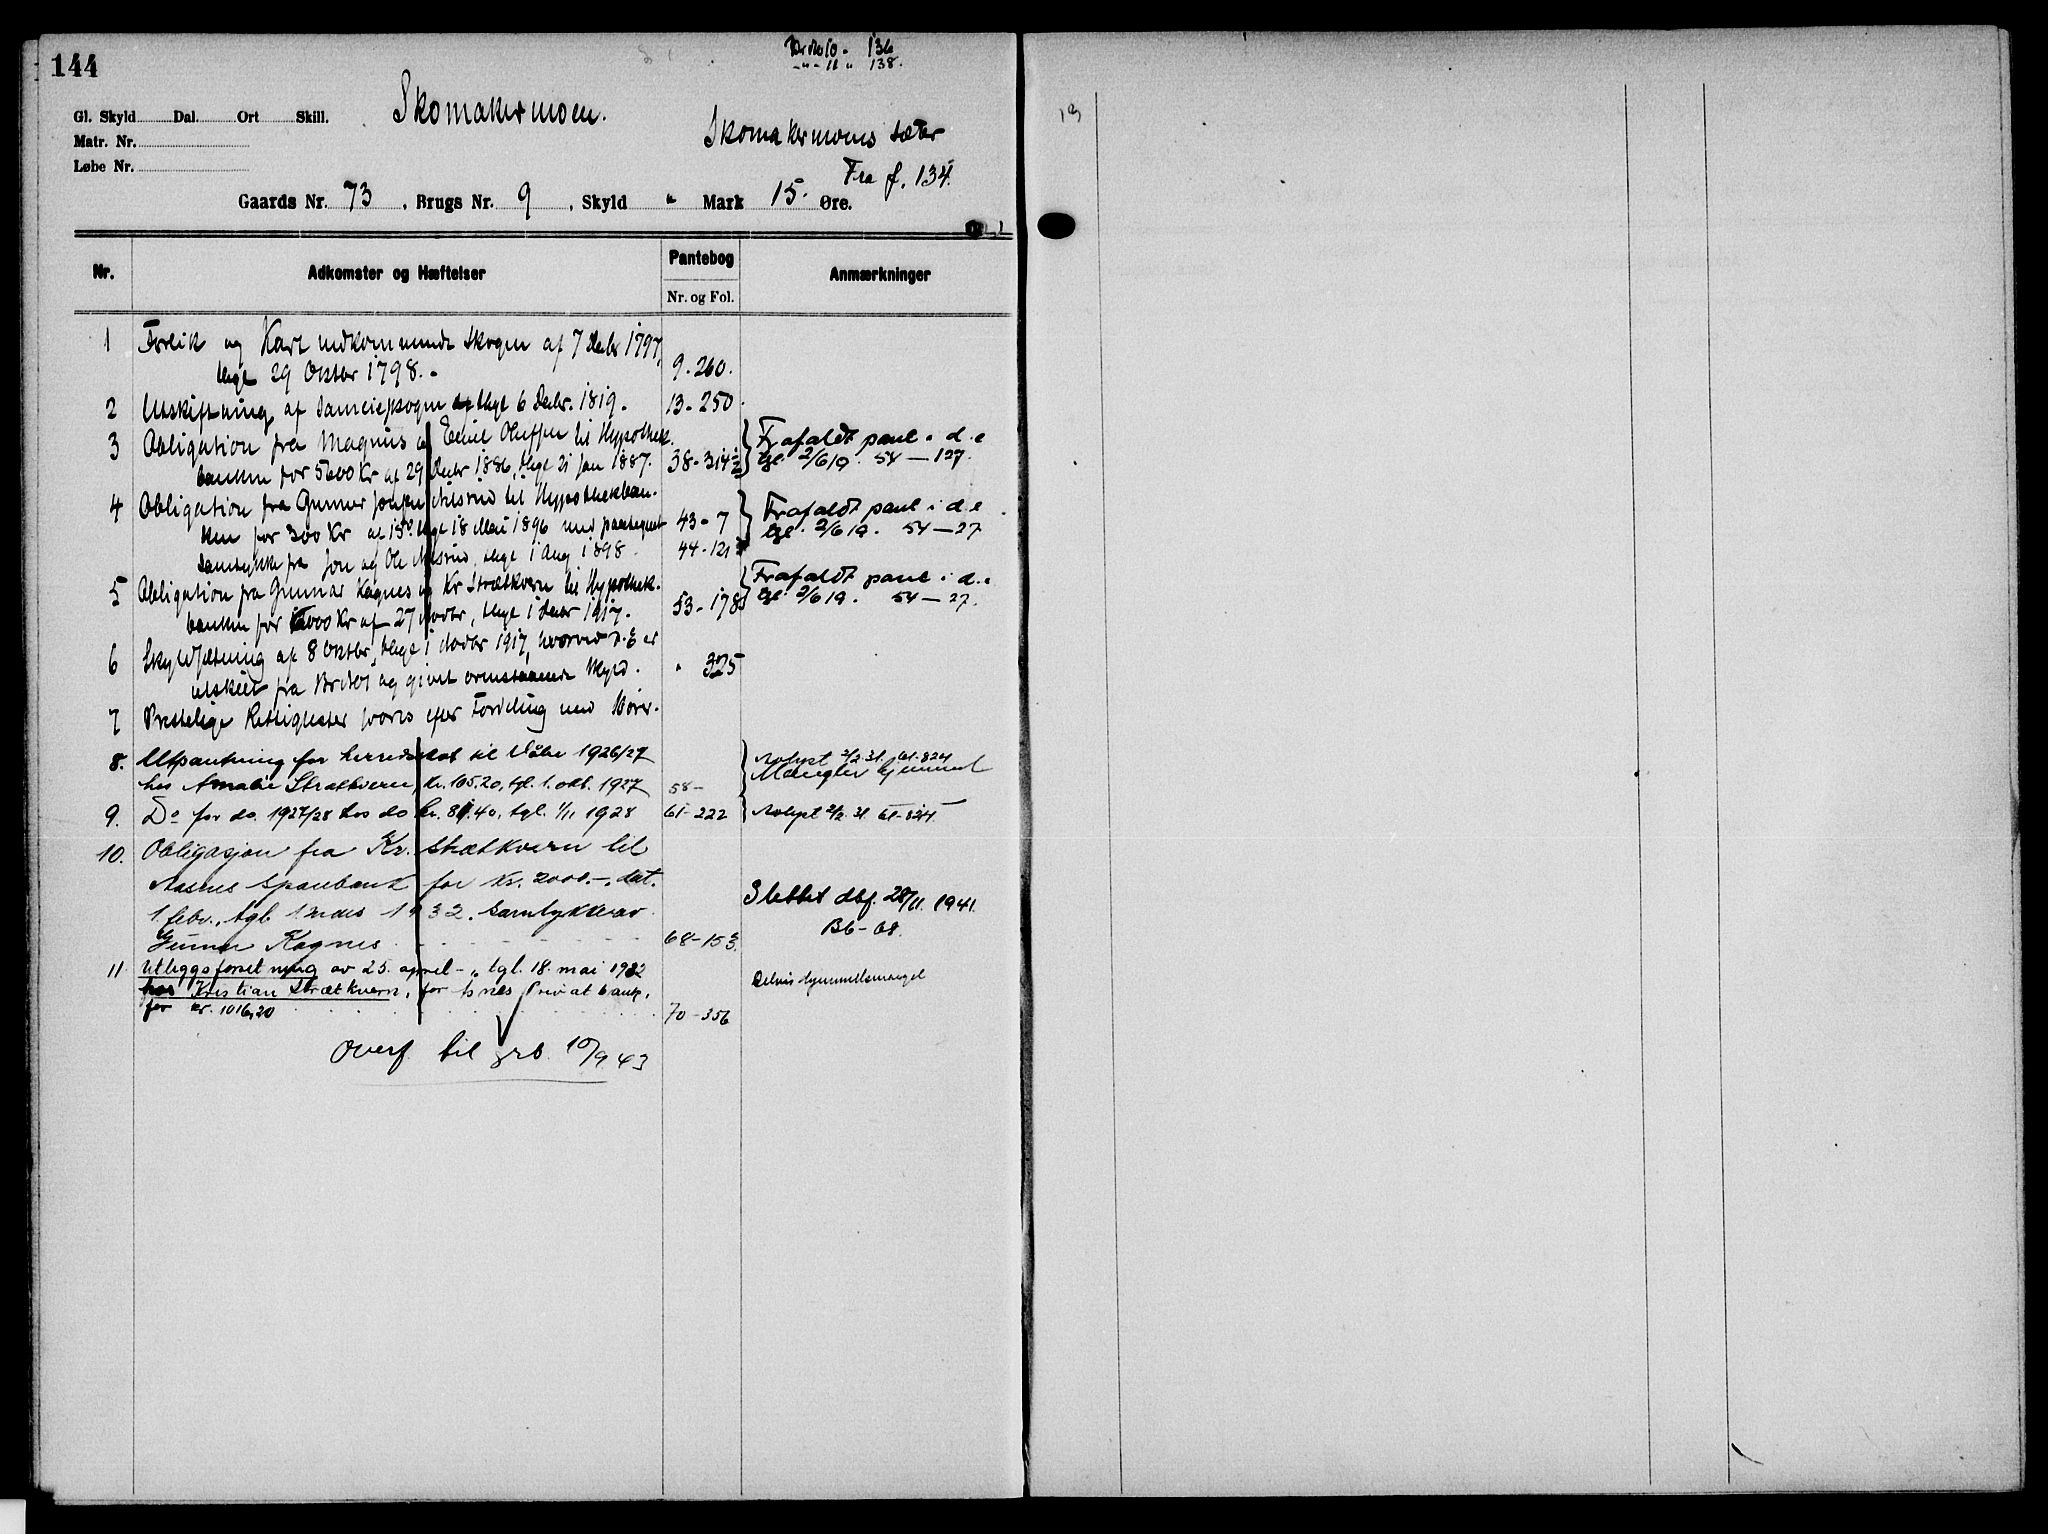 144
Br No 10 - 136
-"- 11 " 138.
Gl. Skyld Dal. Ort Skill.
Skomakermoen.
Matr. Nr.
Skomakermoens sæter
Løbe Nr.
Fra f. 134.
Gaards Nr. 73, Brugs Nr. 9, Skyld " Mark 15. Øre.
Nr. Adkomster og Hæftelser Pantebog Anmærkninger
Nr. og Fol.
1 Forlik og Kart vedkommende Skogen af 7 Decbr 1797,
thgl 29 Oktbr 1798. - 9-260.
2 Utskiftning af Sameieskogen thgl 6 Decbr. 1819. 13-250.
3 Obligation fra Magnus og Emil Olufsen til Hypothek-
banken for 5600 Kr af 29 Decbr 1886, thgl 21 Jan 1887. 38-314½
Frafaldt pant i d.e
tgl. 2/6 19. 54-127.
4 Obligation fra Gunnar Jonsen til Hypothekban-
ken for 300 Kr af 15de thgl 18 Mai 1896 med paategnet 43-7
samtykke fra Jon og Ole thgl 1 Aug 1898. 44-121
Frafaldt pant i d.e
tgl. 2/6 19. 54-27
5 Obligation fra Gunnar Kagnes og Kr Strætkvern til Hypothek-
banken for 6000 Kr af 27 Novbr, thgl 1 Decbr 1917. 53-178
Frafaldt pant i d.e
tgl. 2/6 19. 54-27.
6 Skyldsætning af 8 Oktbr, thgl 1 Novbr 1917, hvorved d.E er
utskilt fra Br No 1 og givet ovenstaaende skyld. " 325
7 Prestelige Rettigheter svares efter Fordeling med 10 øre.
8. Utpantning for herredsskat til Våler 1926/27
hos Amalie Strætkvern, kr. 105,20, tgl. 1. okt. 1927 58-
Avlyst 2/2 31. 61-824
Mangler hjemmel
9. Do for do. 1927/28 hos do kr. 81.40, tgl. 1/11 1928 61-222 Avlyst 2/2 31 61-824
10. Obligasjon fra Kr. Strætkvern til
Aasnes Sparebank for kr. 2000.-, dat.
1. febr., tgl. 1 mars 1932. Samtykke av
Gunnar Kagnes 68-153.
Slettet dbf. 28/11. 1941.
B6-68.
11 Utleggsforretning av 25. april - " tgl. 18. mai 1932
hos Kristian Strætkvern, for Åsnes Privatbank,
for kr. 1016,20 70-356
Delvis hjemmelsmangel
Overf. til grb. 10/9 43